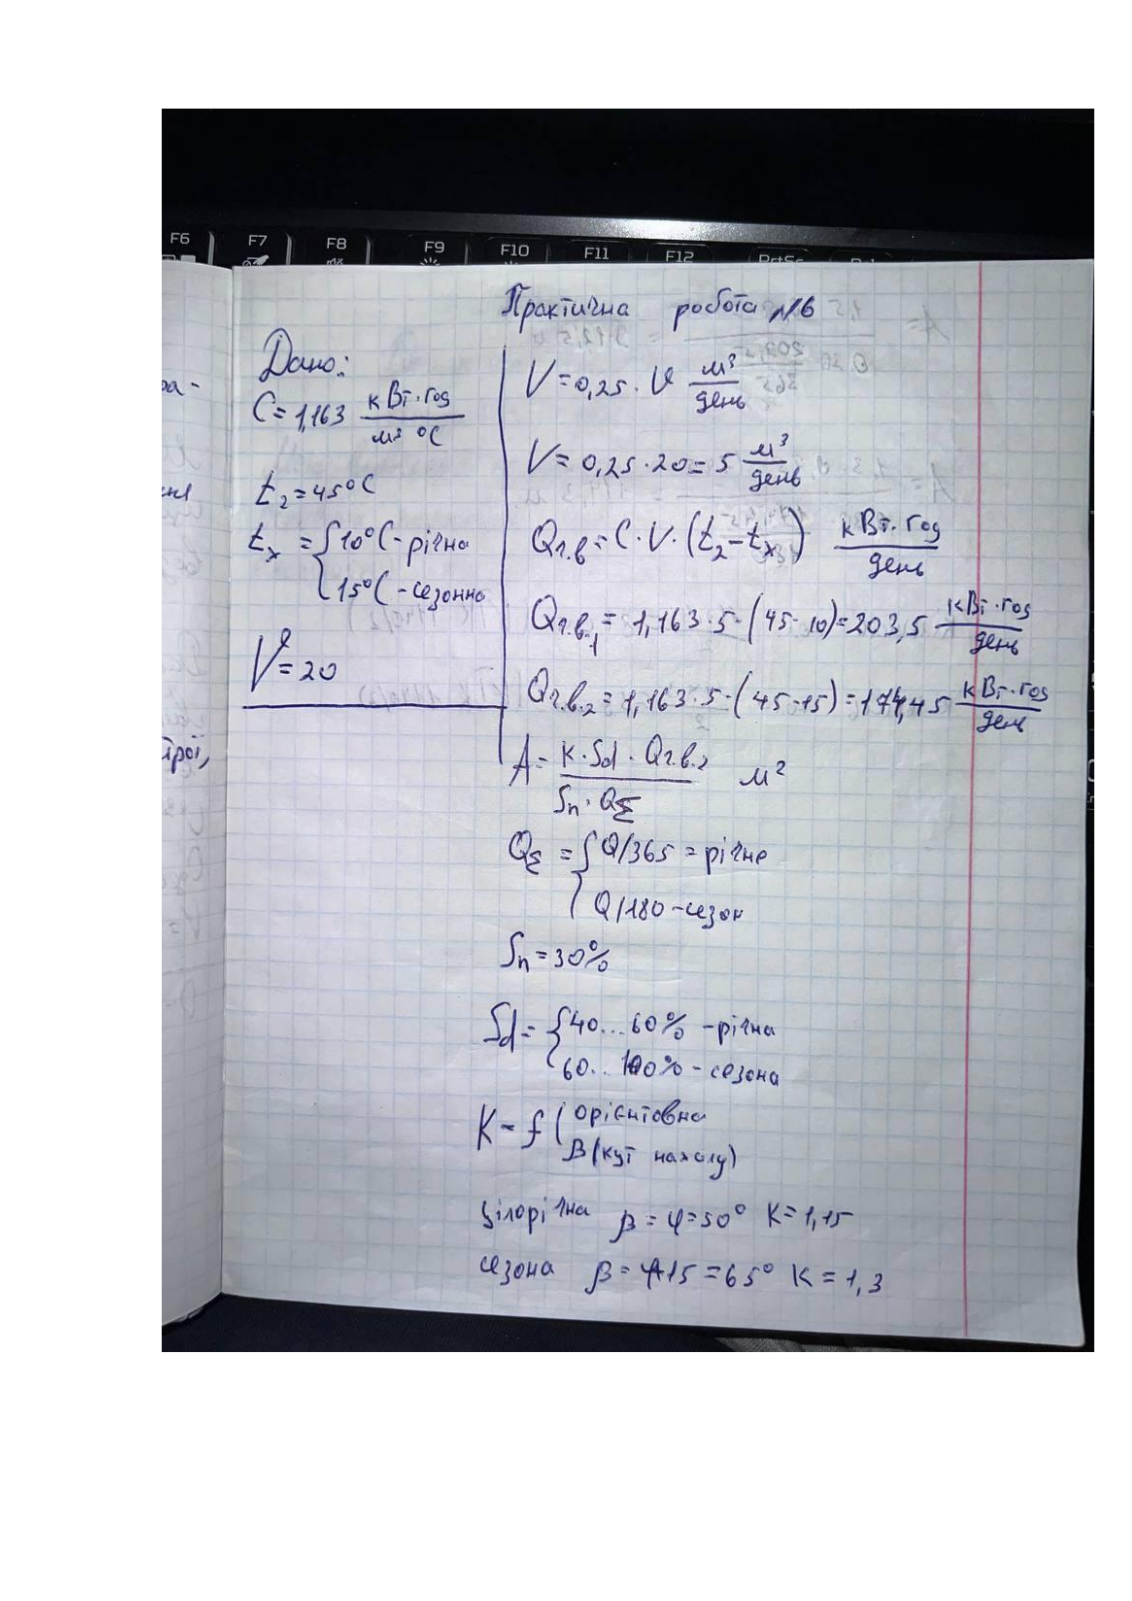 F6 F7 F8 F9 F10 F11 F12 PrtSc
Практична робота №6
Дано:
C=1,163 кВт·год/м³ °C
t₂=45°C
tₓ = { 10°C - річна
15°C - сезонна
V=20
V=0,25·V м³/день
V=0,25·20=5 м³/день
Qг.в=C·V·(t₂-tₓ) кВт·год/день
Qг.в.₁=1,163·5·(45-10)=203,5 кВт·год/день
Qг.в.₂=1,163·5·(45-15)=174,45 кВт·год/день
A= K·Sd·Qг.в.₂/Sп·QΣ м²
QΣ = { Q/365 = річне
Q/180 - сезон
Sп=30%
Sd= { 40...60% - річна
60..100% - сезона
K= f ( орієнтовна
β (кут нахилу)
цілорічна β=φ=50° K=1,15
сезона β=φ+15=65° K=1,3
ра-
трої,